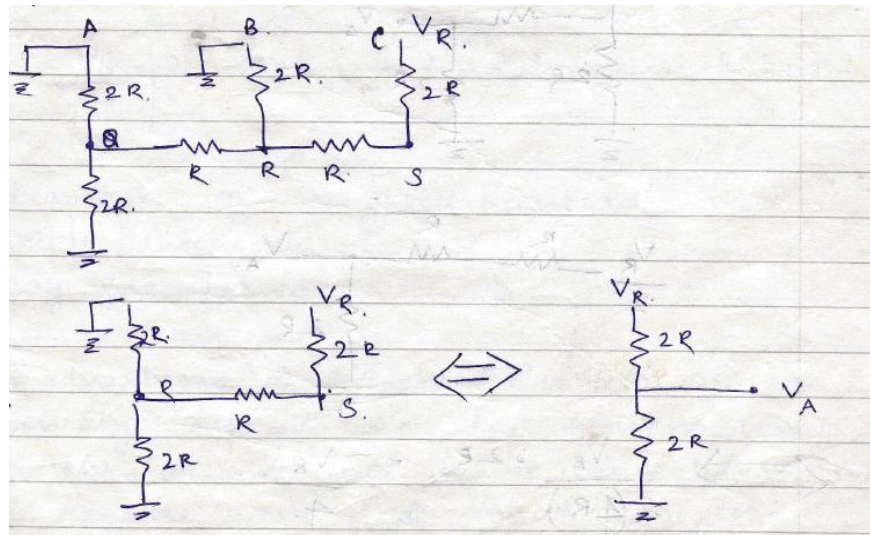 A B. C V_R.
2R. 2R. 2R
Q
R R R. S
2R.
V_R.
2R. 2R
R R S.
2R
V_R.
2R
V_A
2R